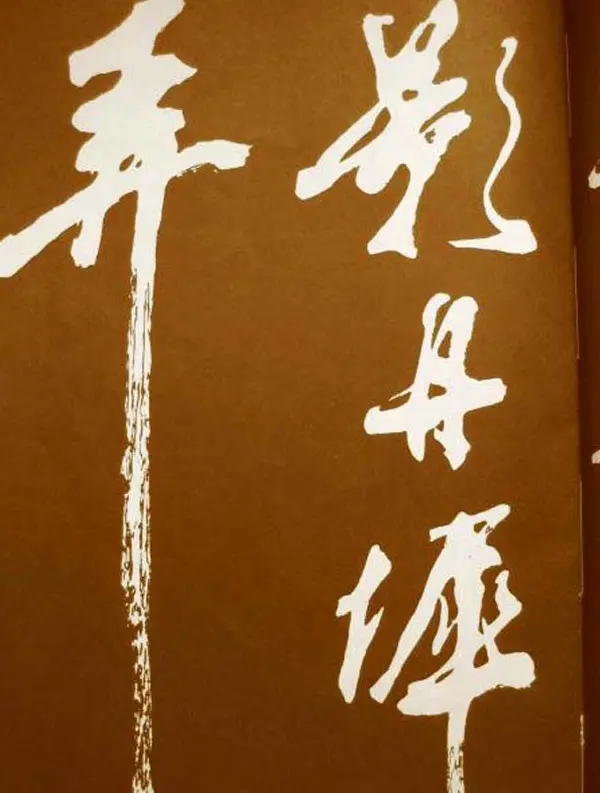 影丹墀
弄